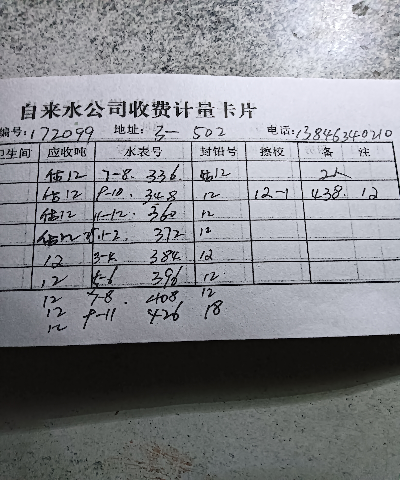 自来水公司收费计量卡片
编号:172099 地址: 3-502 电话:13846340210
卫生间 应收吨 水表号 封铅号 擦校 备 注
估12 7-8. 336 估12 2人
估12 9-10. 348 12 12-1 438. 12
估12 11-12. 360 12
估12 1-2. 372 12
12 3-4. 384 12
12 5-6 396 12
12 7-8. 408 12
12 9-11 426 18
12